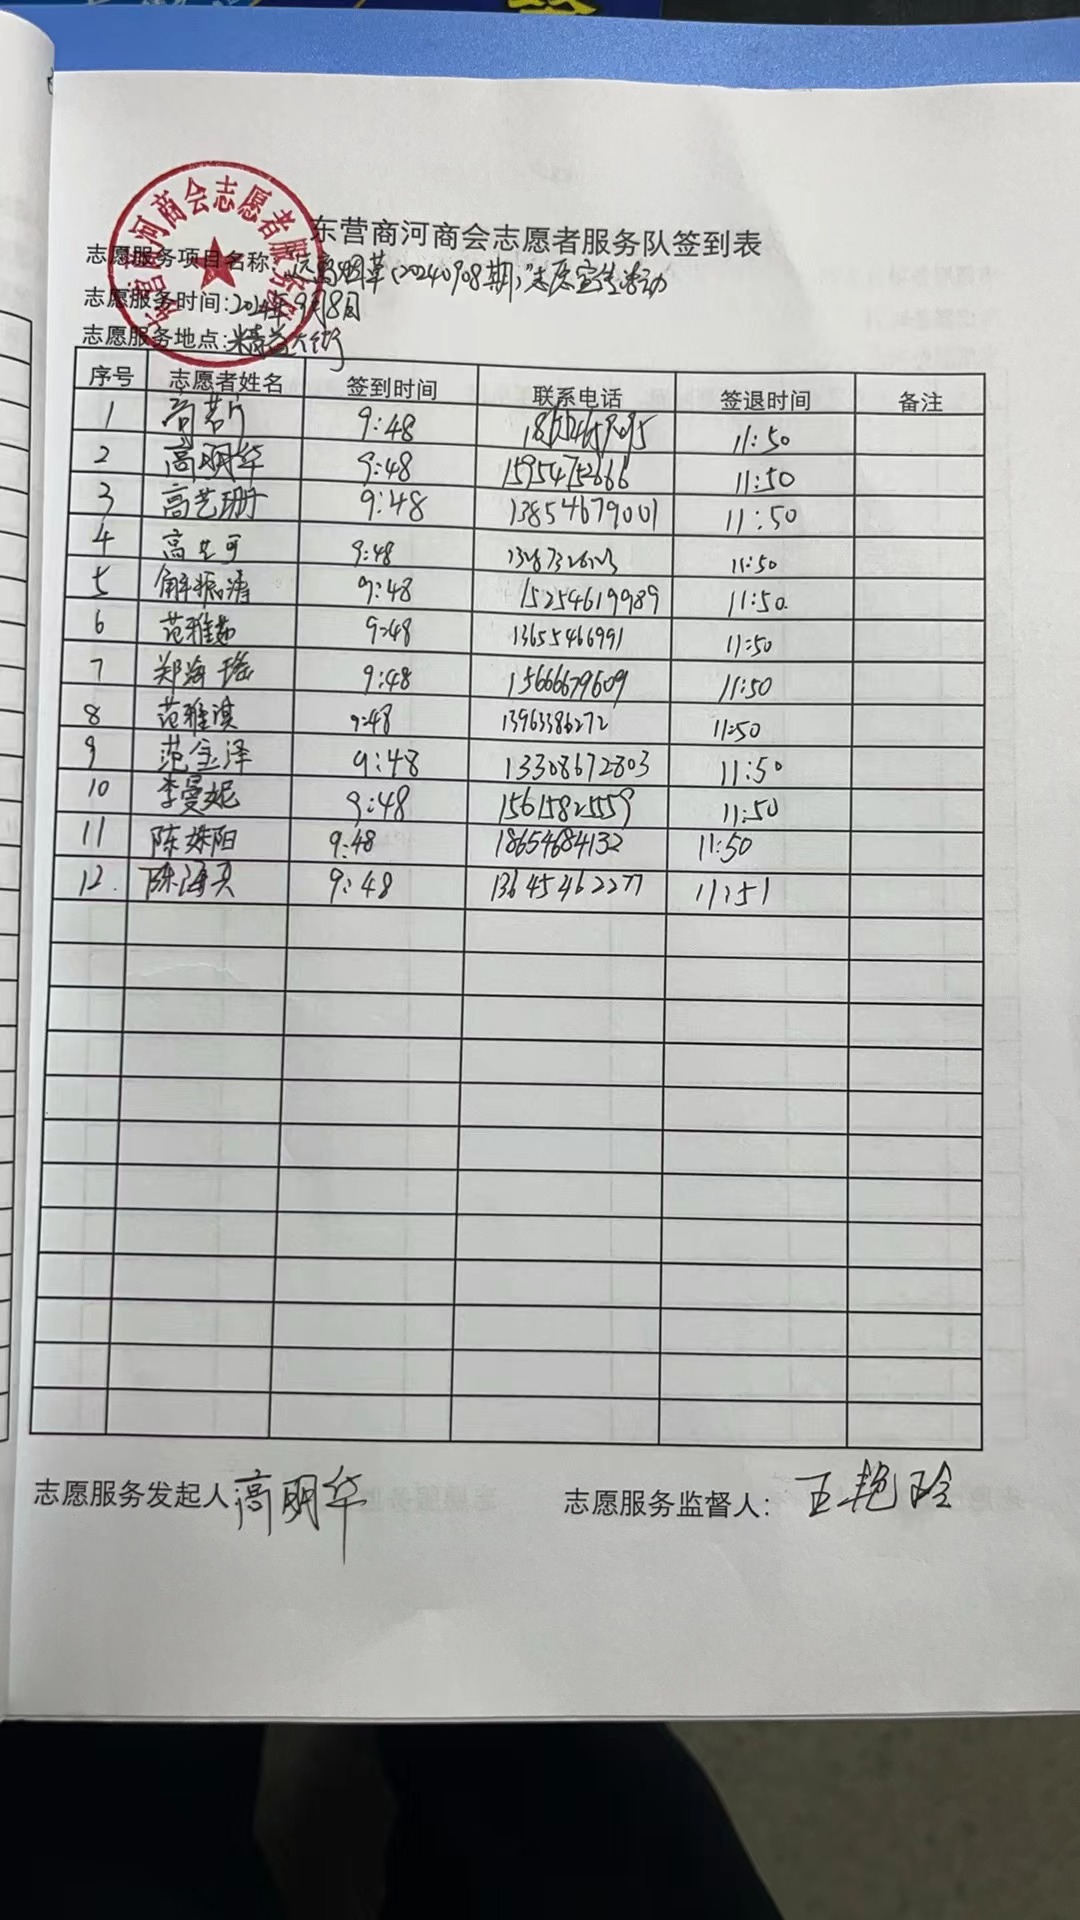 东营商河商会志愿者服务队签到表
志愿服务项目名称: 远离烟草(20240908期)"志愿宣传活动
志愿服务时间:2024年9月8日
志愿服务地点:大街
序号 志愿者姓名 签到时间 联系电话 签退时间 备注
1 高 9:48 11:50
2 高明华 9:48 15954752666 11:50
3 高艺珊 9:48 13854679001 11:50
4 高艺可 9:48 11:50
5 解振清 9:48 15254619989 11:50
6 范雅茹 9:48 13655466991 11:50
7 郑海瑶 9:48 15666679609 11:50
8 范雅淇 9:48 13963386272 11:50
9 范金泽 9:48 13308672803 11:50
10 李曼妮 9:48 15615825559 11:50
11 陈姝阳 9:48 18654684132 11:50
12. 陈海 9:48 13645462277 11:51
志愿服务发起人:高明华 志愿服务监督人: 王艳玲